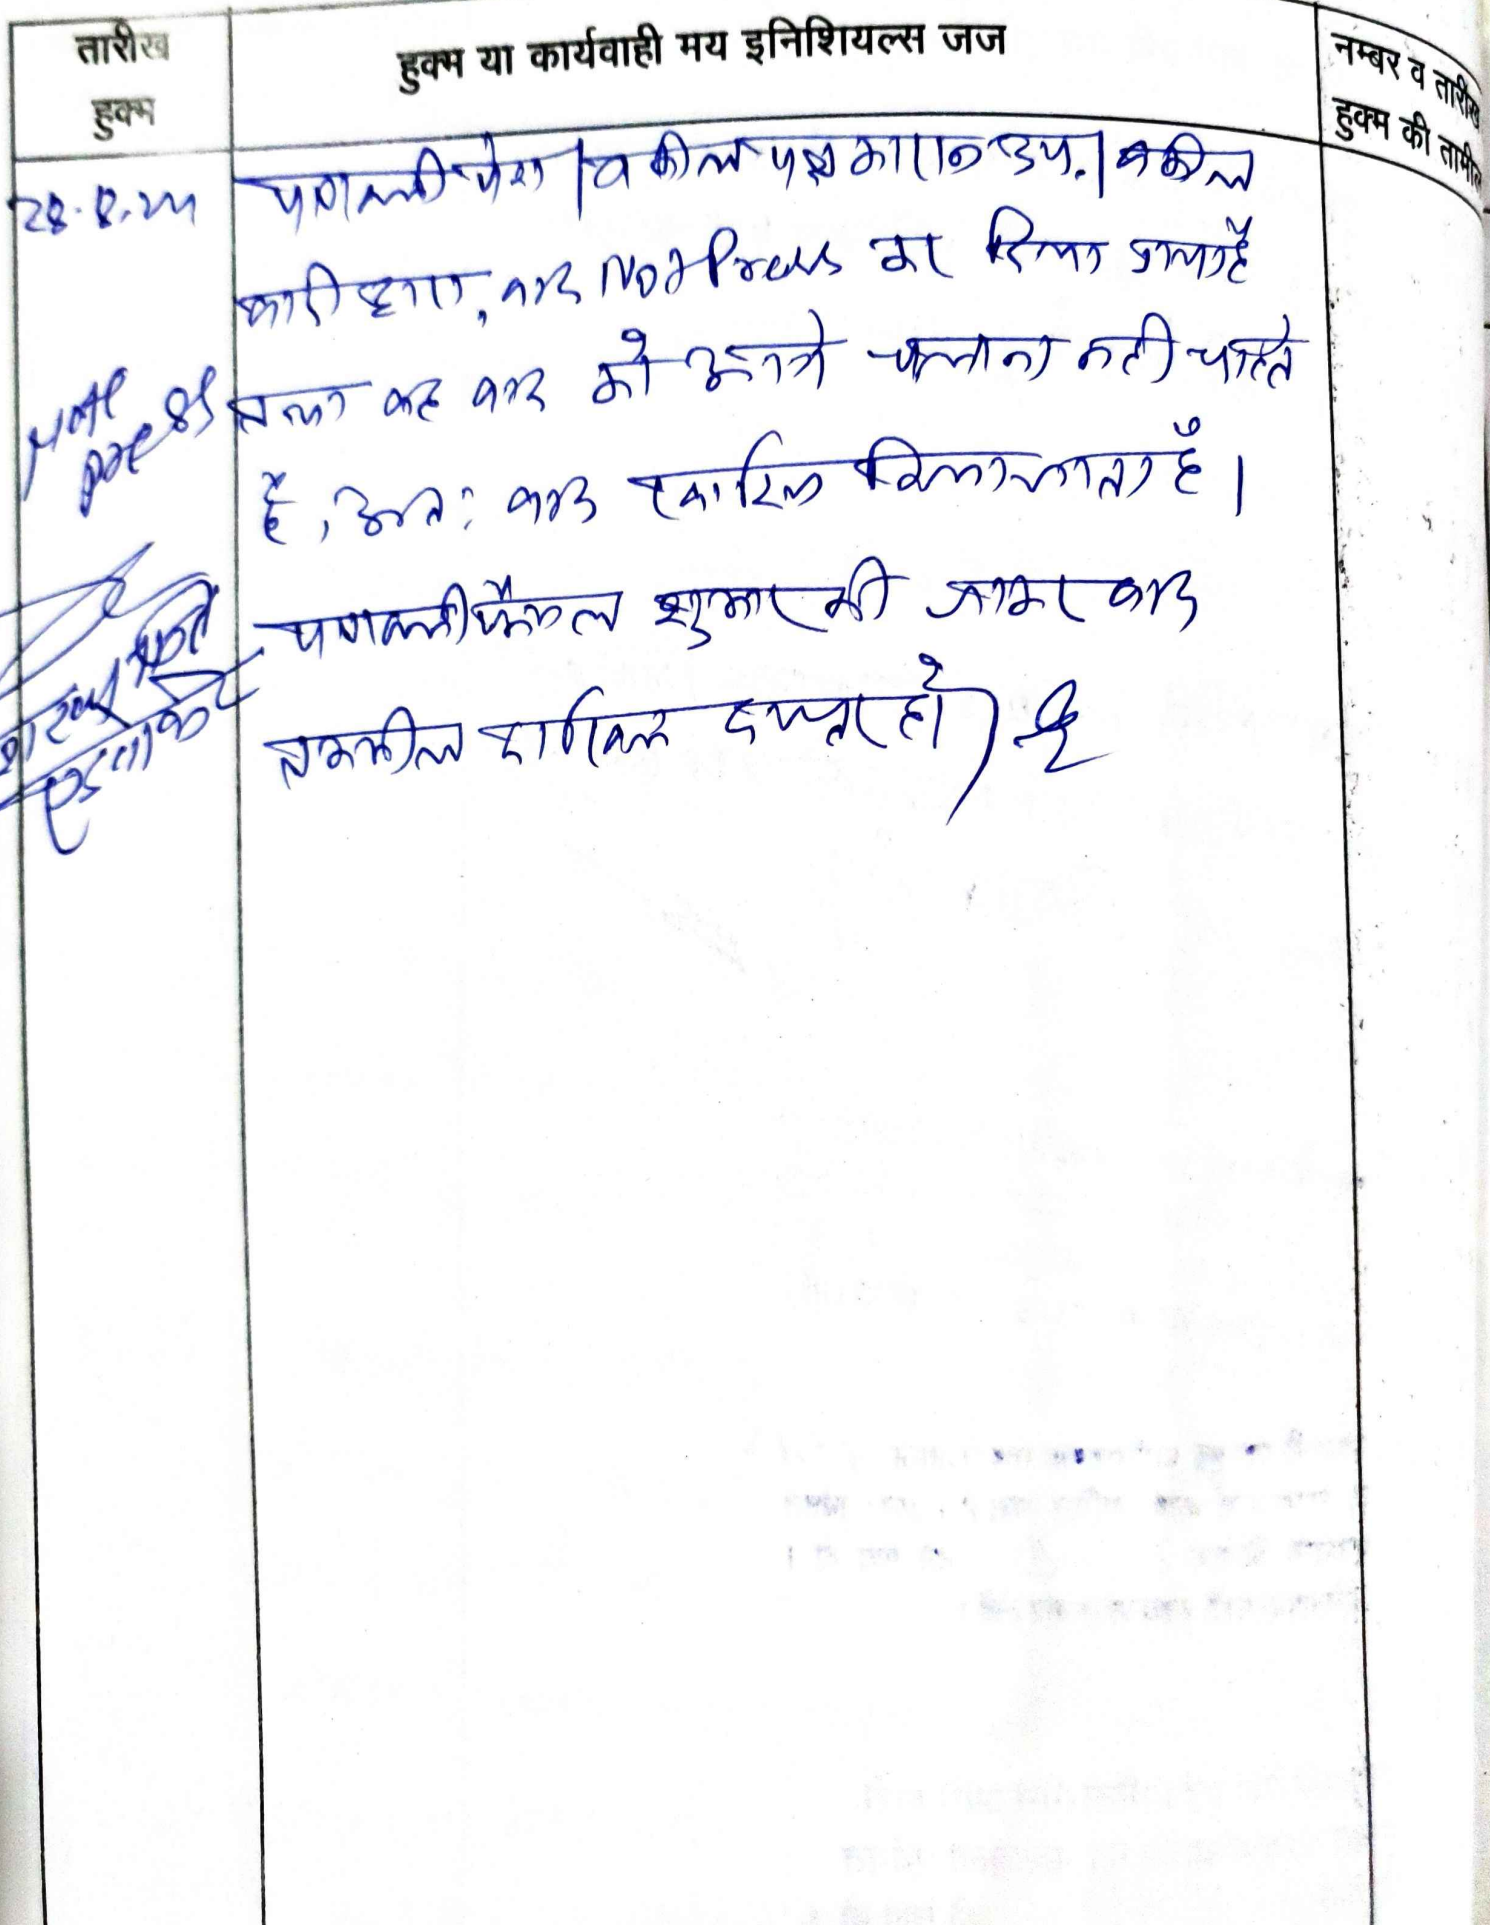 तारीख
हुक्म
हुक्म या कार्यवाही मय इनिशियल्स जज
नम्बर व तारीख
हुक्म की तामील
28.8.24
पत्रावली पेश। वकील पक्षकारान उप.। वकील
वादी द्वारा, वाद Not Press कर दिया गया है
तथा वह वाद को आगे चलाना नही चाहते
हैं, अतः वाद खारिज किया जाता है।
पत्रावली फैसल शुमार की जाकर बाद
तकमील दाखिल दफ्तर हो।
Not
press